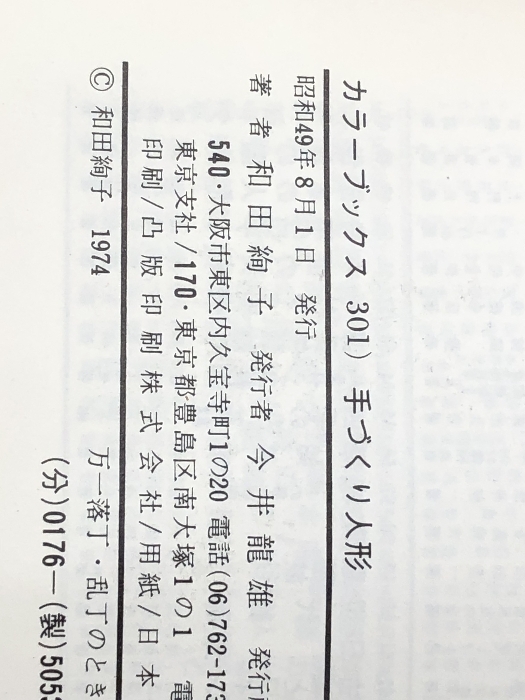 カラーブックス 301) 手づくり人形
昭和49年8月1日 発行
著者 和田絢子 発行者 今井龍雄 発行
540・大阪市東区内久宝寺町1の20 電話(06)762-173
東京支社/170・東京都豊島区南大塚1の1 電
印刷/凸版印刷株式会社/用紙/日本
© 和田絢子 1974 万一落丁・乱丁のとき
(分)0176―(製)505